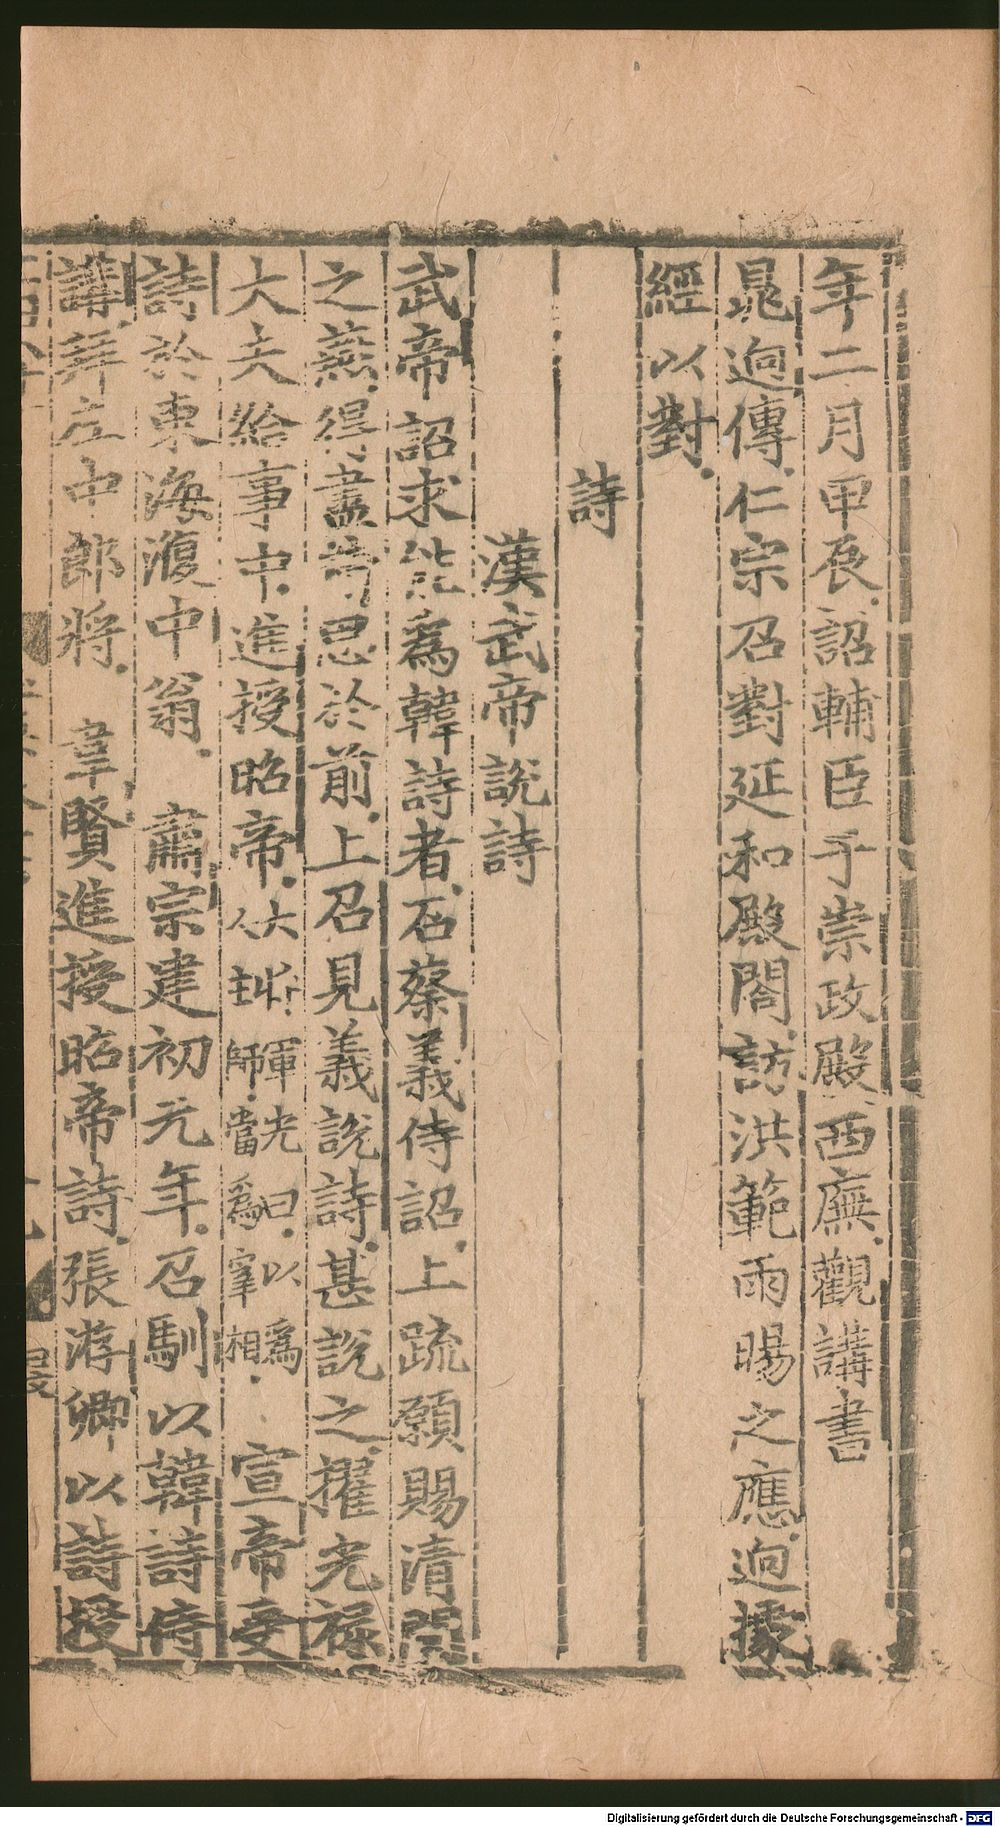 年二月甲辰詔輔臣于崇政殿西廡觀講書
晁迥傳仁宗召對延和殿閣訪洪範雨暘之應迥據
經以對
詩
漢武帝説詩
武帝詔求能爲韓詩者召蔡義待詔上疏願賜清閒
之燕得盡思於前上召見義説詩甚説之擢光禄
大夫給事中進授昭帝大將軍光曰以爲人主師當爲宰相 宣帝受
詩於東海澓中翁 肅宗建初元年召馴以韓詩侍
講拜左中郎將 韋賢進授昭帝詩張游卿以詩授
Digitalisierung gefördert durch die Deutsche Forschungsgemeinschaft - DFG